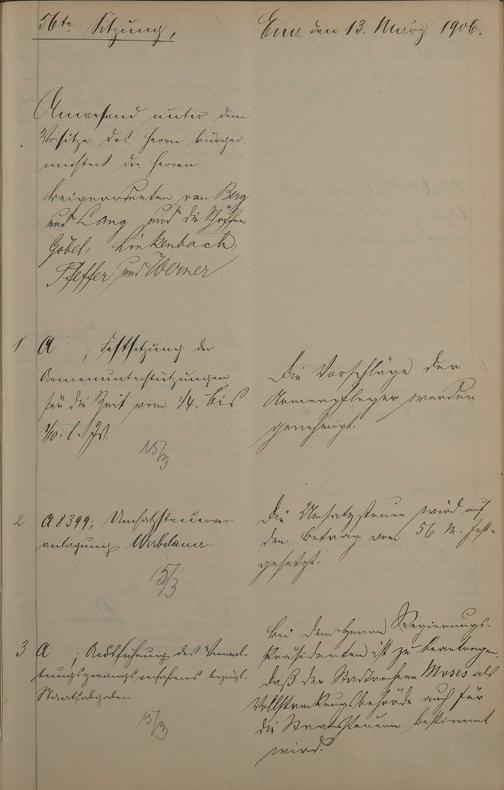 56te Sitzung,
Ems, den 13. März 1906.
Anwesend unter dem
Vorsitze des Herrn Bürger-
meisters die Herren
Beigeordneten van Berg
und Lang und die Schöffen
Göbel, Linkenbach
Pfeffer und Werner.
1 A , Festsetzung der
Armenunterstützungen
für die Zeit vom 1/4. bis
1/10. l. Js.
15/3
Die Vorschläge der
Armenpfleger werden
genehmigt.
2 A 8399; Umsatzsteuerver-
anlagung
15/3
Die Umsatzsteuer wird auf
den Betrag von 56 M. fest-
gesetzt.
3 A ; Ausführung des Verwal-
tungszwangsverfahrens bezügl.
Staatsabgaben
15/3
Bei dem Herrn Regierungs-
Präsidenten ist zu beantragen,
daß der Stadtrechner Moses als
Vollstreckungsbehörde auch für
die Staatssteuern bestimmt
wird.